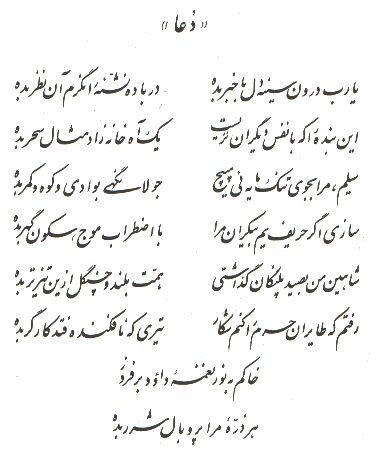 «دُعا»
یارب درونِ سینہ دلِ باخبر بدہ    در بادہ نشّۂ را نگرم آن نظر بدہ
این بندہ را کہ با نفسِ دیگران نزیست    یک آہِ خانہ زاد مثالِ سحر بدہ
سیلم، مرا بجوی تنک مایۂ نی مپیچ    جولانگہی بوادی و کوہ و کمر بدہ
سازی اگر حریفِ یمِ بیکران مرا    با اضطرابِ موج سکونِ گہر بدہ
شاہینِ من بصیدِ پلنگان گذاشتی    ہمّت بلند و چنگل ازین تیز تر بدہ
رفتم کہ طایرانِ حرم را کنم شکار    تیری کہ نافکندہ فتد کارگر بدہ
خاکم بہ نورِ نغمۂ داؤد بر فروز
ہر ذرّۂ مرا پر و بالِ شرر بدہ